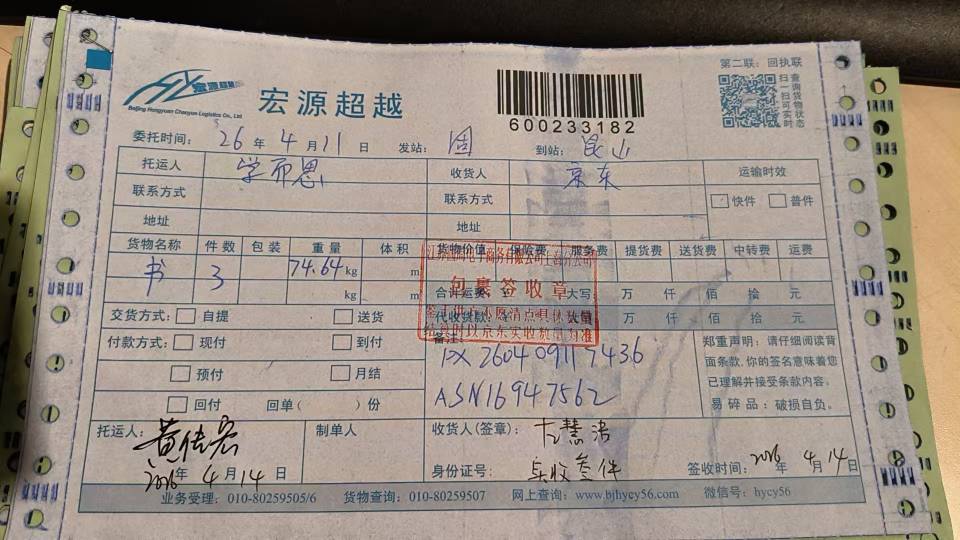 第二联：回执联
宏源超越
Beijing Hongyuan Chaoyue Logistics Co., Ltd
宏源超越
600233182
扫一扫可实时查询货物状态
委托时间：26年4月11日 发站：固 到站：昆山
托运人 学而思 收货人 京东 运输时效
联系方式 联系方式 快件 普件
地址 地址
货物名称 件数 包装 重量 体积 货物价值 保险费 服务费 提货费 送货费 中转费 运费
书 3 74.64kg m
kg m 合计运费 大写： 万 仟 佰 拾 元
交货方式： 自提 送货 代收货款 万 仟 佰 拾 元
包裹签收章
付款方式： 现付 到付 备注：
预付 月结
回付 回单（ ）份
ASN16947562
郑重声明：请仔细阅读背
面条款，你的签名意味着您
已理解并接受条款内容。
易碎品：破损自负。
托运人： 黄佳宏 制单人 收货人(签章)：
2026年4月14日 身份证号： 实收叁件 签收时间：2026年4月14日
业务受理：010-80259505/6 货物查询：010-80259507 网上查询：www.bjhycy56.com 微信号：hycy56